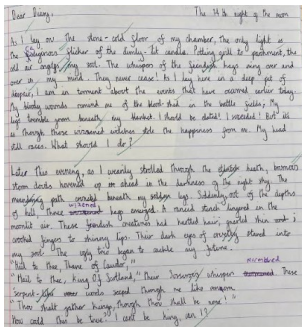 Dear Diary, The 14th night of the moon
As I lay on the stone-cold floor of my chamber, the only light is
the flicker of the dimly-lit candle. Putting quill to parchment, the
ink my soul. The whispers of the hags ring over and
over in my mind. They never cease! As I lay here in a deep pit of
despair, I am in torment about the events that have occurred earlier today.
My bloody wounds remind me of the blood-shed in the battle fields, My
legs tremble from beneath my blanket. I should be elated! I succeeded! But it's
as though these witches stole the happiness from me. My head
still races. What should I do?
Later this evening, as I wearily strolled through the heath, ominous
storm clouds hovered up ahead in the darkness of the night sky. The
path beneath my legs. Suddenly, out of the depths
of hell, three wizened hags emerged. A rancid stench lingered in the
air. These creatures had matted hair, thin and
crooked fingers to skinny lips. Their dark eyes of stared into
my soul. The ugly trio began to my future.
"Hail to thee Thane of Cawdor."
"Hail to thee, King Of Scotland," their whisper murmured. These
serpent-like words seeped through me like
"Thou shalt get kings, though thou shall be none!"
How could this be true? I can't be king, can I?